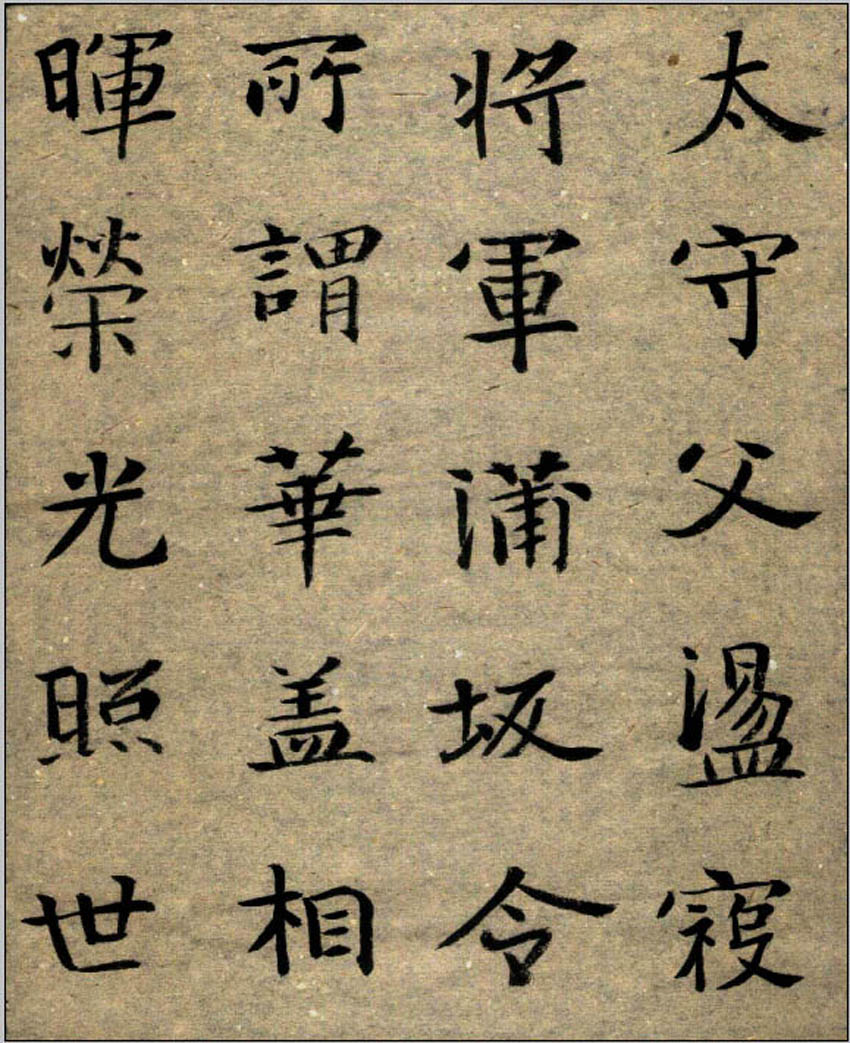 太守父盪寇
将軍蒲坂令
所謂華盖相
暉榮光照世